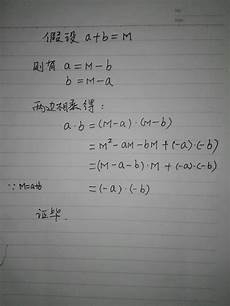 假设 a+b=M
则有 a=M-b
b=M-a
两边相乘得:
a·b=(M-a)·(M-b)
=M²-aM-bM+(-a)·(-b)
=(M-a-b)·M+(-a)·(-b)
∵M=a+b =(-a)·(-b)
证毕.